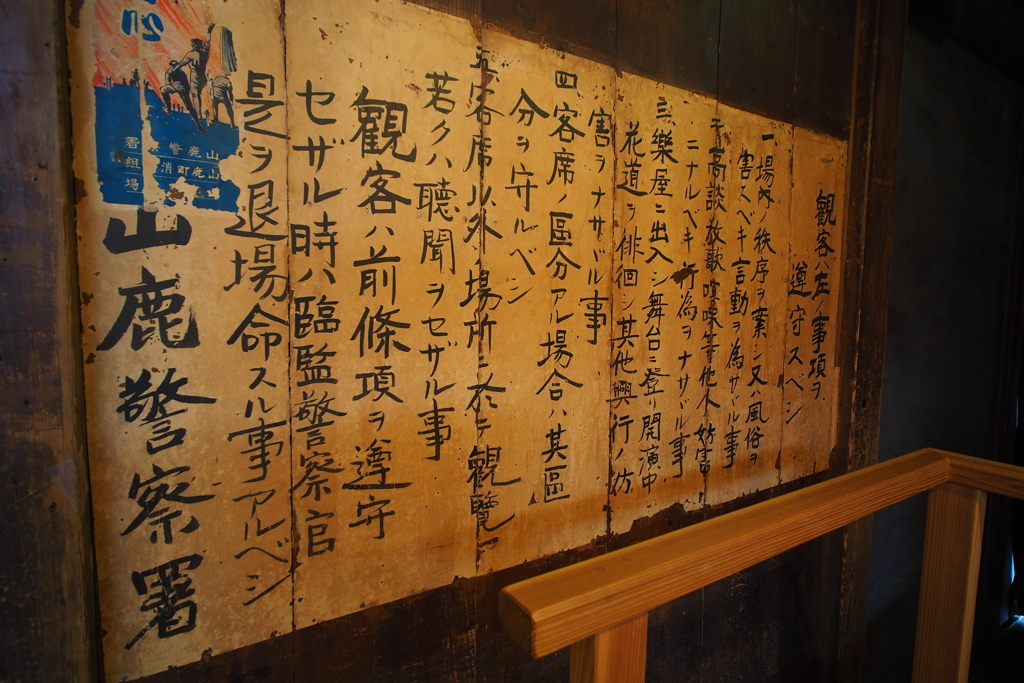 観客ハ左ノ事項ヲ
遵守スベシ
一、場内ノ秩序ヲ紊シ又ハ風俗ヲ
害スベキ言動ヲ為サヾル事
二、高談放歌喧噪等他人ノ妨害
ニナルベキ行為ヲナサヾル事
三、樂屋ニ出入シ舞台ニ登リ開演中
花道ヲ徘徊シ其他興行ノ妨
害ヲナサヾル事
四 客席ノ區分アル場合ハ其區
分ヲ守ルベシ
五、客席以外ノ場所ニ於テ觀覽
若クハ聽聞ヲセザル事
觀客ハ前條項ヲ遵守
セザル時ハ臨監警察官
是ヲ退場命スル事アルベシ
山鹿警察署
山鹿警察署
山鹿町消
場組